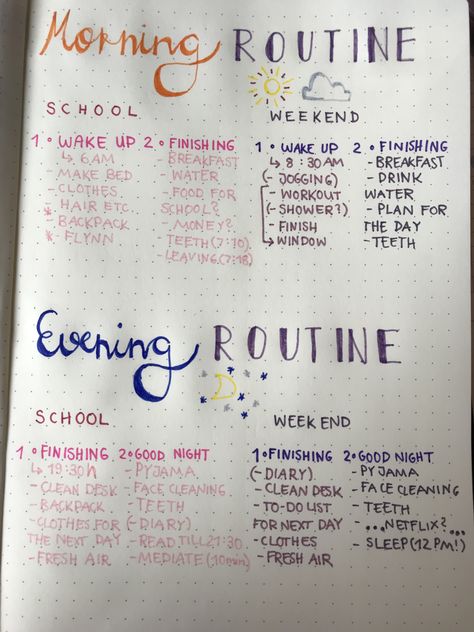 Morning ROUTINE
SCHOOL
1. WAKE UP
↳ 6 AM
- MAKE BED
- CLOTHES
- HAIR ETC.
* BACKPACK
* FLYNN
2. FINISHING
- BREAKFAST
- WATER
- FOOD FOR
SCHOOL?
- MONEY?
TEETH (7:10)
- LEAVING (7:18)
WEEKEND
1. WAKE UP
↳ 8:30AM
(- JOGGING)
- WORKOUT
(- SHOWER?)
- FINISH
→ WINDOW
2. FINISHING
- BREAKFAST
- DRINK
WATER
- PLAN FOR
THE DAY
- TEETH
Evening ROUTINE
SCHOOL
1. FINISHING
↳ 19:30h
- CLEAN DESK
- BACKPACK
- CLOTHES FOR
THE NEXT DAY
- FRESH AIR
2. GOOD NIGHT
- PYJAMA
- FACE CLEANING
- TEETH
(- DIARY)
- READ TILL 21:30
- MEDIATE (10min)
WEEKEND
1. FINISHING
(- DIARY)
- CLEAN DESK
- TO-DO LIST
FOR NEXT DAY
- CLOTHES
- FRESH AIR
2. GOOD NIGHT
- PYJAMA
- FACE CLEANING
- TEETH
- ...NETFLIX?...
- SLEEP (12 PM!)